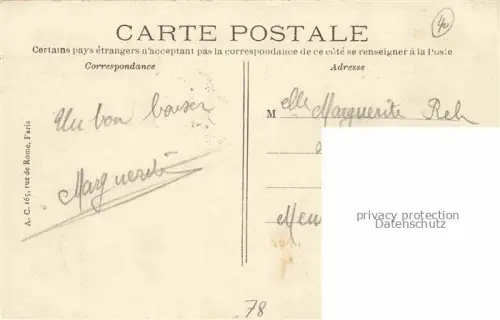 40
CARTE POSTALE
Certains pays étrangers n'acceptant pas la correspondance de ce côté se renseigner à la Poste
Correspondance
Adresse
Un bon baiser
Marguerite
Melle Marguerite
privacy protection
Datenschutz
A. C. 165, rue de Rome, Paris
78